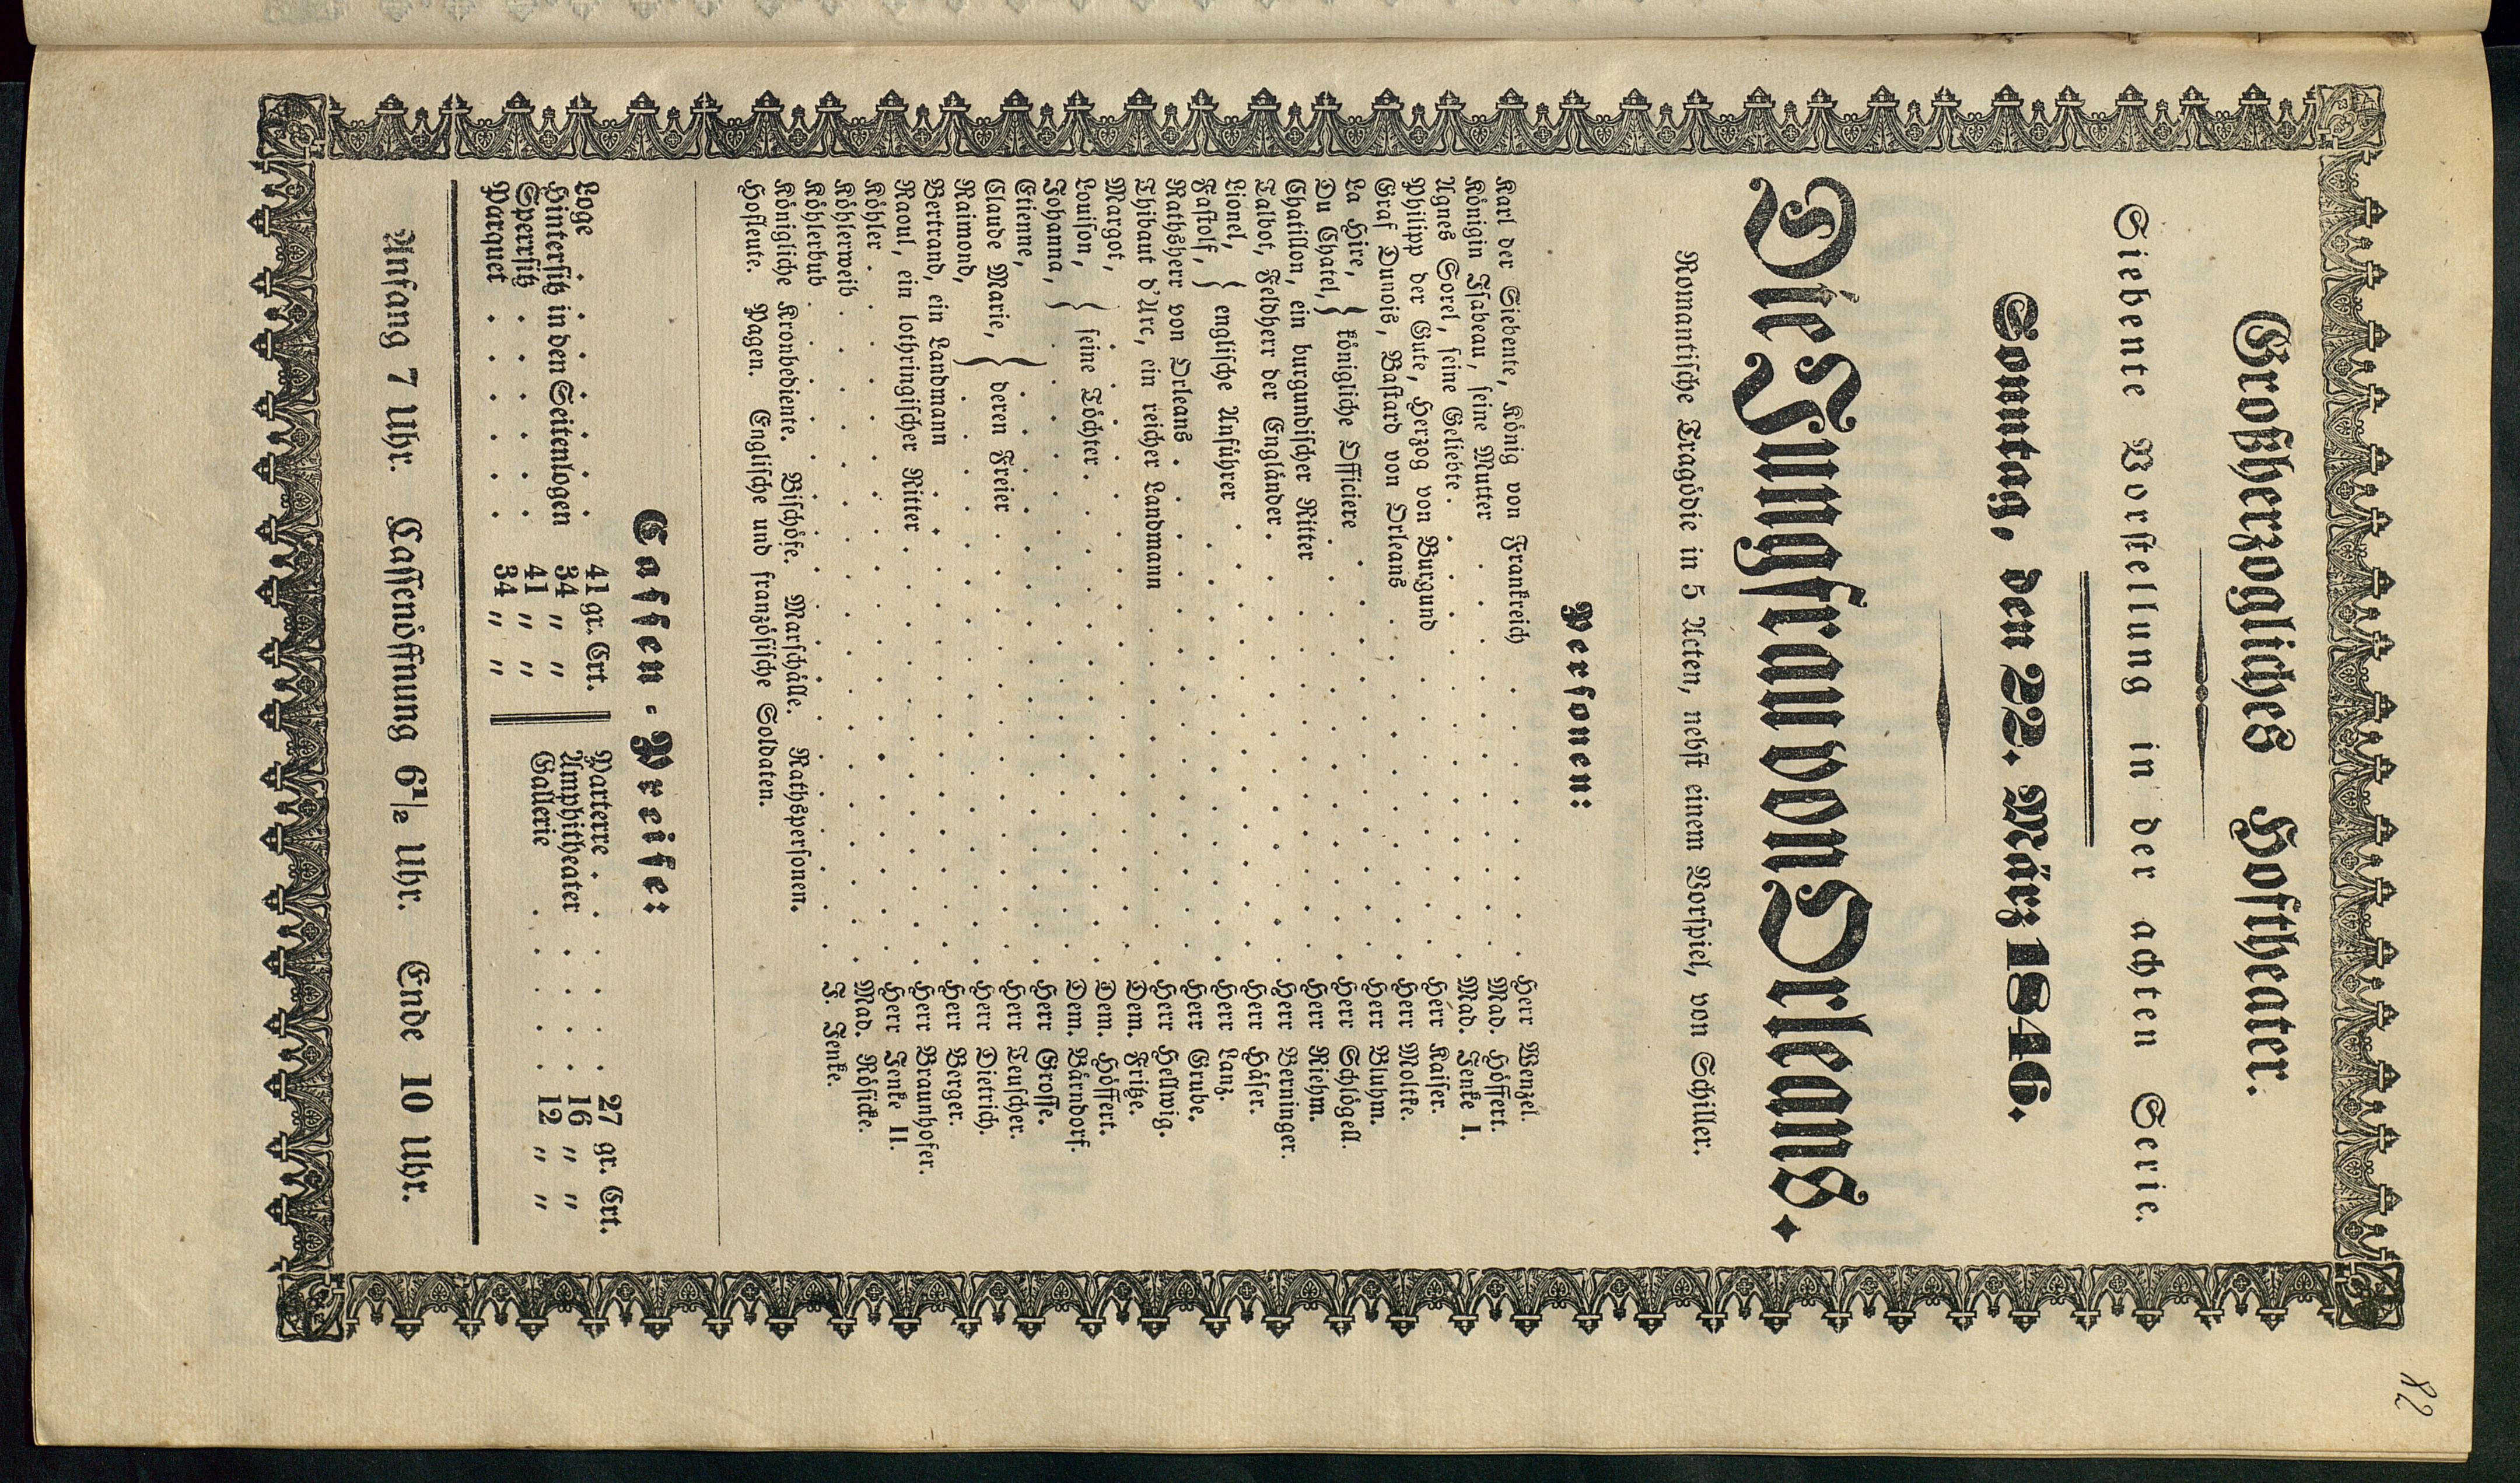 82
Großherzogliches Hoftheater.
Siebente Vorstellung in der achten Serie.
Sonntag, den 22. März 1846.
Die Jungfrau von Orleans.
Romantische Tragödie in 5 Acten, nebst einem Vorspiel, von Schiller.
Personen:
Karl der Siebente, König von Frankreich . . . . . . . . Herr Wenzel.
Königin Isabeau, seine Mutter . . . . . . . . . . . Mad. Höffert.
Agnes Sorel, seine Geliebte . . . . . . . . . . . . Mad. Jenke I.
Philipp der Gute, Herzog von Burgund . . . . . . . . Herr Kaiser.
Graf Dunois, Bastard von Orleans . . . . . . . . . . Herr Moltke.
La Hire, } königliche Officiere . . . . . . . . . . . Herr Bluhm.
Du Chatel, } . . . . . . . . . . . Herr Schlögell.
Chatillon, ein burgundischer Ritter . . . . . . . . . . Herr Riehm.
Talbot, Feldherr der Engländer . . . . . . . . . . . Herr Berninger.
Lionel, } englische Anführer . . . . . . . . . . . Herr Häser.
Fastolf, } . . . . . . . . . . . Herr Lanz.
Rathsherr von Orleans . . . . . . . . . . . . . Herr Grube.
Thibaut d'Arc, ein reicher Landmann . . . . . . . . . Herr Hellwig.
Margot, } . . . . . . . . . . . . . . Dem. Fritze.
Louison, } seine Töchter . . . . . . . . . . . . Dem. Höffert.
Johanna, } . . . . . . . . . . . . . . Dem. Bärndorf.
Etienne, } . . . . . . . . . . . . . . Herr Grosse.
Claude Marie, } deren Freier . . . . . . . . . . . Herr Teuscher.
Raimond, } . . . . . . . . . . . . . . Herr Dietrich.
Bertrand, ein Landmann . . . . . . . . . . . . . Herr Berger.
Raoul, ein lothringischer Ritter . . . . . . . . . . . Herr Braunhofer.
Köhler . . . . . . . . . . . . . . . . . . Herr Jenke II.
Köhlerweib . . . . . . . . . . . . . . . . . Mad. Rösicke.
Köhlerbub . . . . . . . . . . . . . . . . . J. Jenke.
Königliche Kronbediente. Bischöfe. Marschälle. Rathspersonen.
Hofleute. Pagen. Englische und französische Soldaten.
Cassen-Preise:
Loge . . . . . . . 41 gr. Crt.
Hintersitz in den Seitenlogen 34 " "
Sperrsitz . . . . . . 41 " "
Parquet . . . . . . 34 " "
Parterre . . . . . . 27 gr. Crt.
Amphitheater . . . . . 16 " "
Gallerie . . . . . 12 " "
Anfang 7 Uhr. Cassenöffnung 6 1/2 Uhr. Ende 10 Uhr.